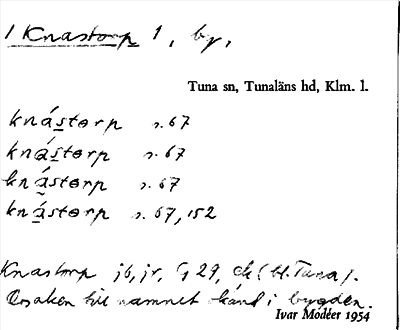 1 Knastorp 1, by,
Tuna sn, Tunaläns hd, Klm. l.
knástorp s. 67
knástorp s. 67
knástorp s. 67
knástorp s. 67, 152
Knastorp jb, jr, G 29, ck (st. Tuna).
Orsaken till namnet känd i bygden.
Ivar Modéer 1954